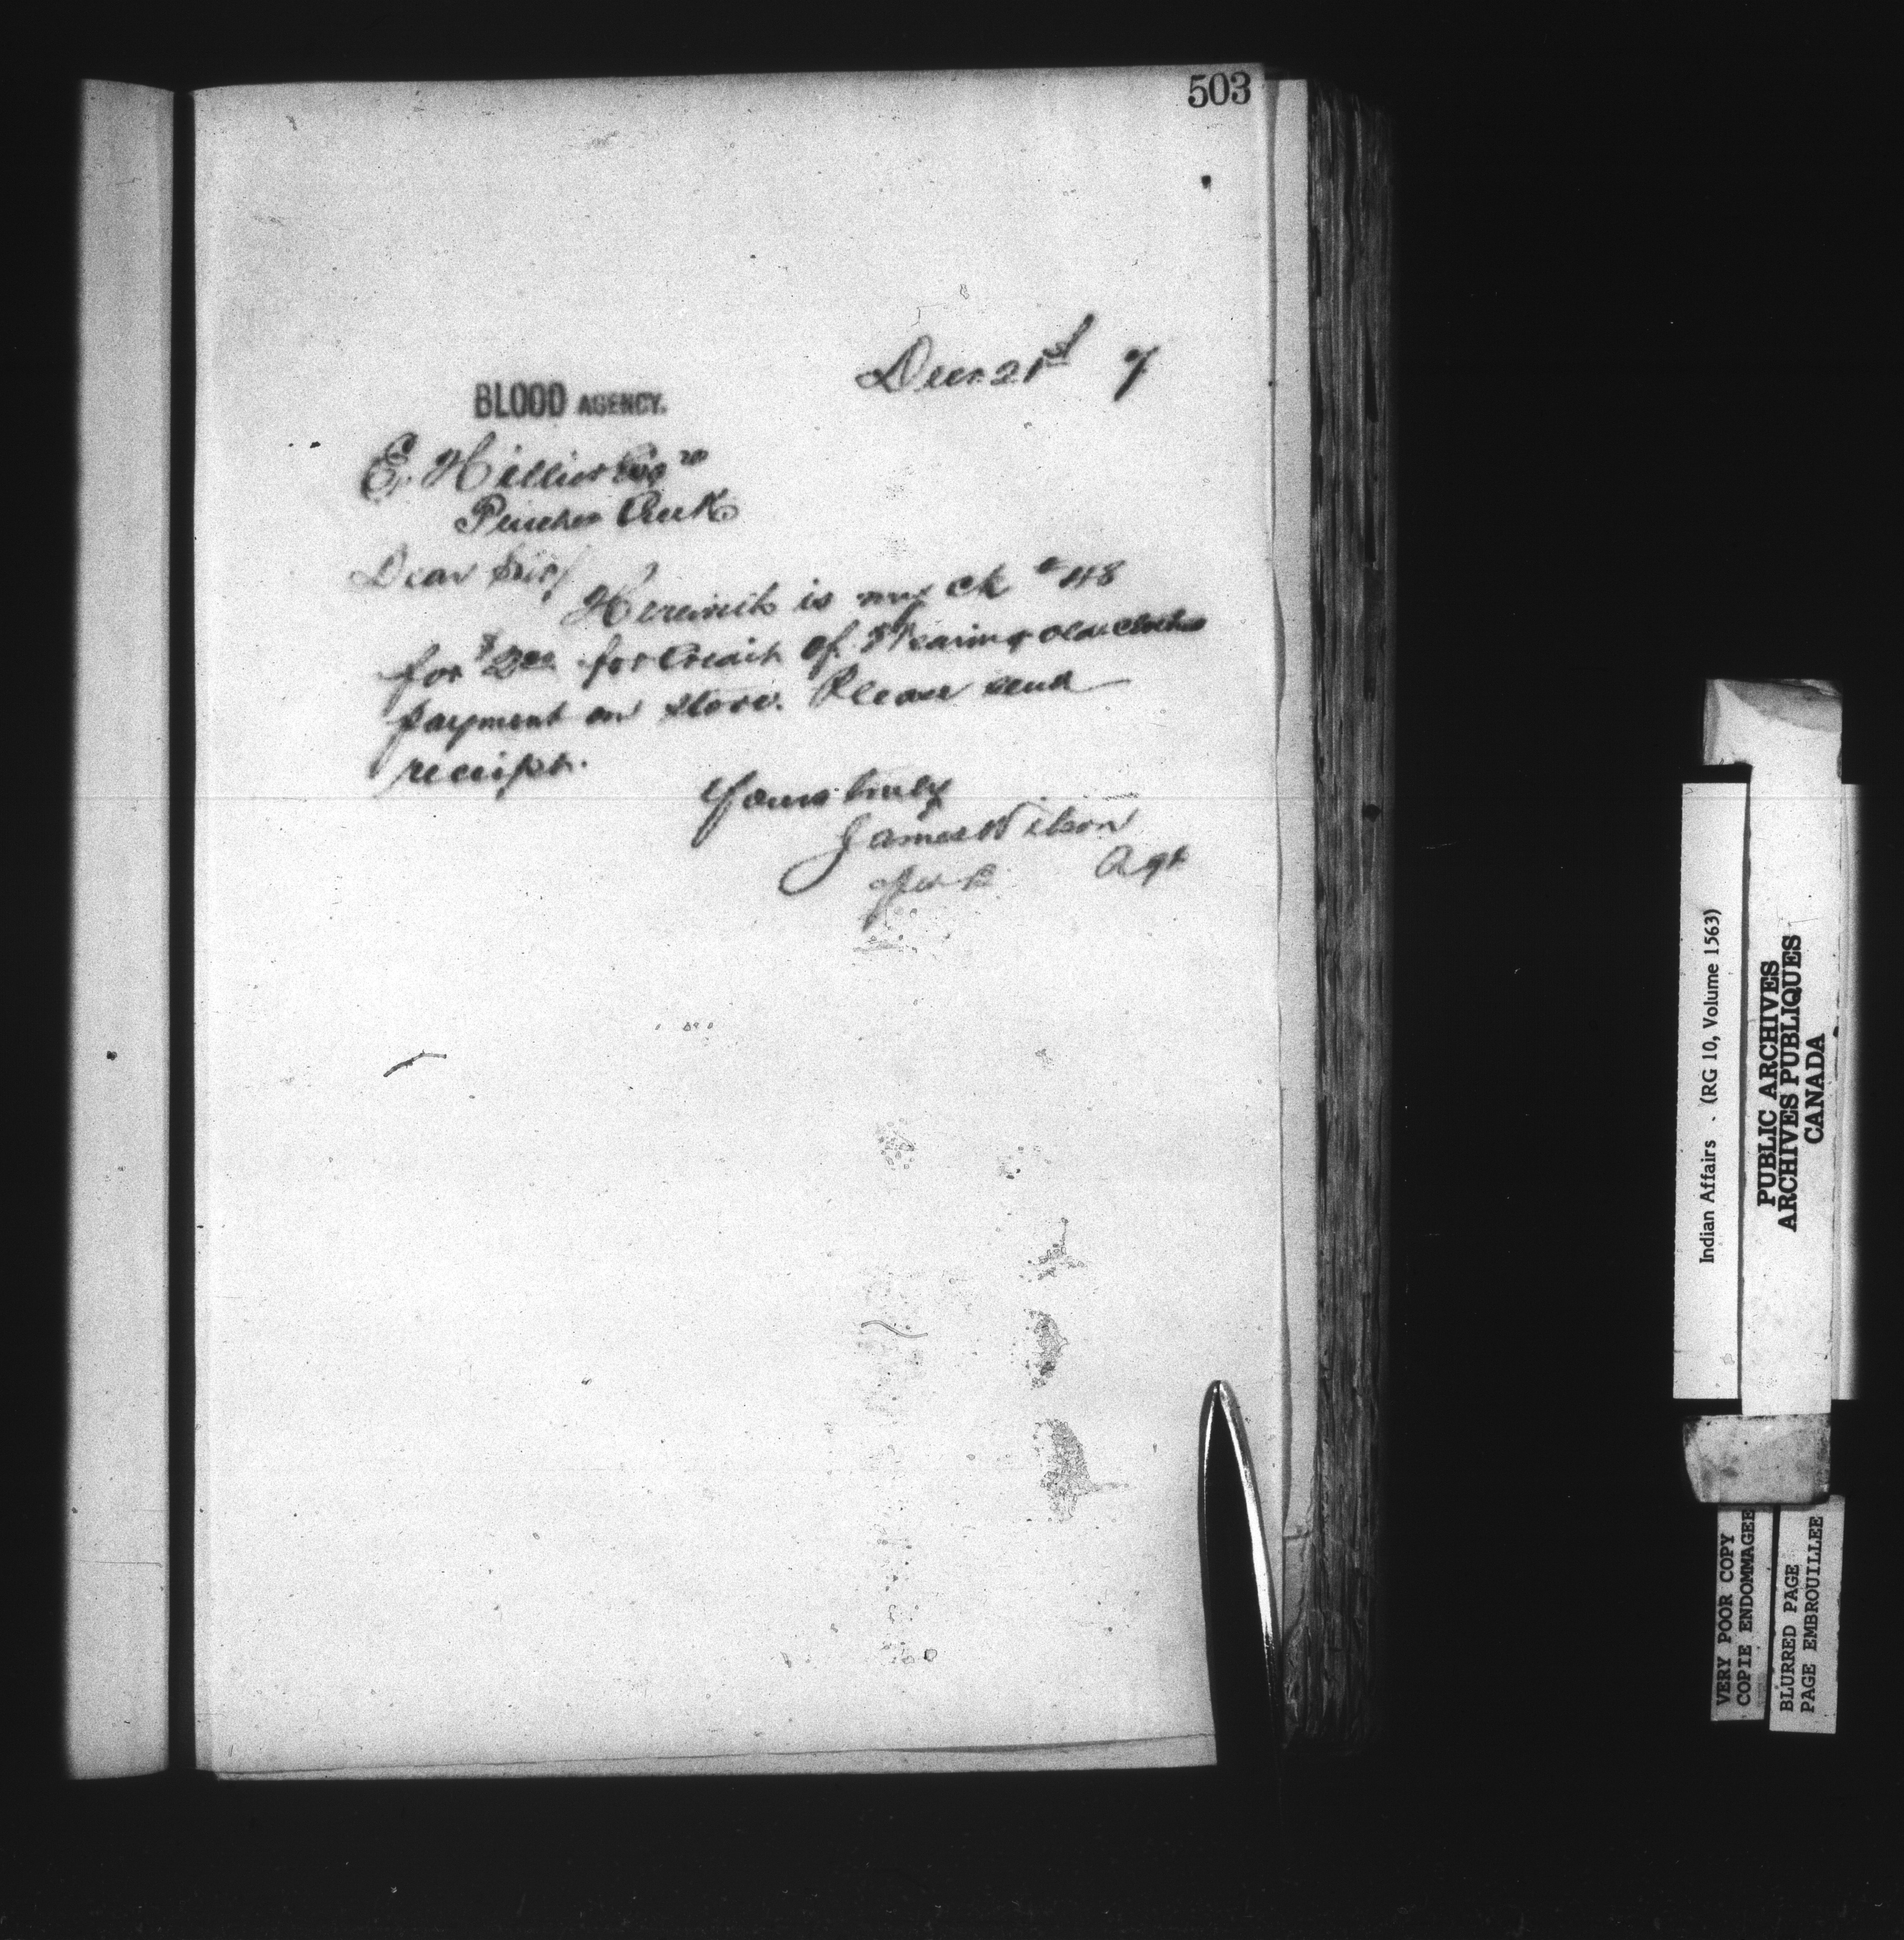 503
Decr. 21st 7
BLOOD AGENCY.
E. Hillier Esqre
Pincher Creek
Dear Sir/
Herewith is my ck # 48
for $2.00 for Credit of Wearing old clothes
payment on stove. Please send
receipt.
Yours truly
James Wilson
Agt
Indian Affairs . (RG 10, Volume 1563)
PUBLIC ARCHIVES
ARCHIVES PUBLIQUES
CANADA
VERY POOR COPY
COPIE ENDOMMAGEE
BLURRED PAGE
PAGE EMBROUILLEE